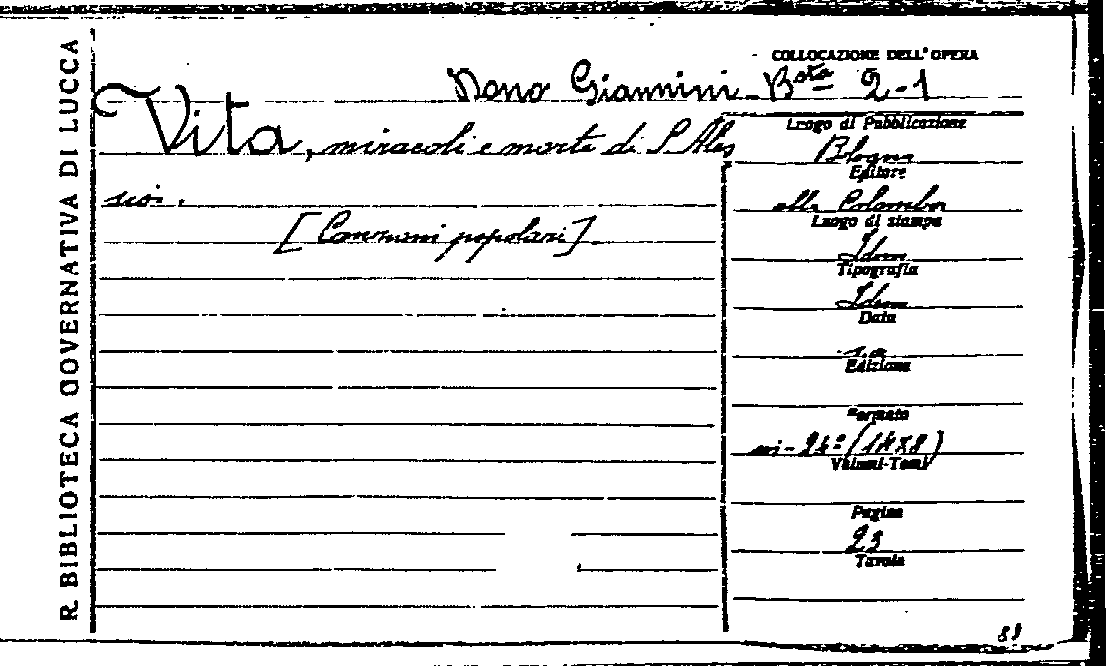 R. BIBLIOTECA GOVERNATIVA DI LUCCA
COLLOCAZIONE DELL'OPERA
Dono Giannini Bsta 2-1
Vita, miracoli e morte di S. Ales
sio.
[Canzoni popolari]
Luogo di Pubblicazione
Blogna
Editore
alla Colomba
Luogo di stampa
Idem
Tipografia
Idem
Data
s.a.
Edizione
Formato
in-24º (14x8)
Volumi-Tomi
Pagine
23
Tavole